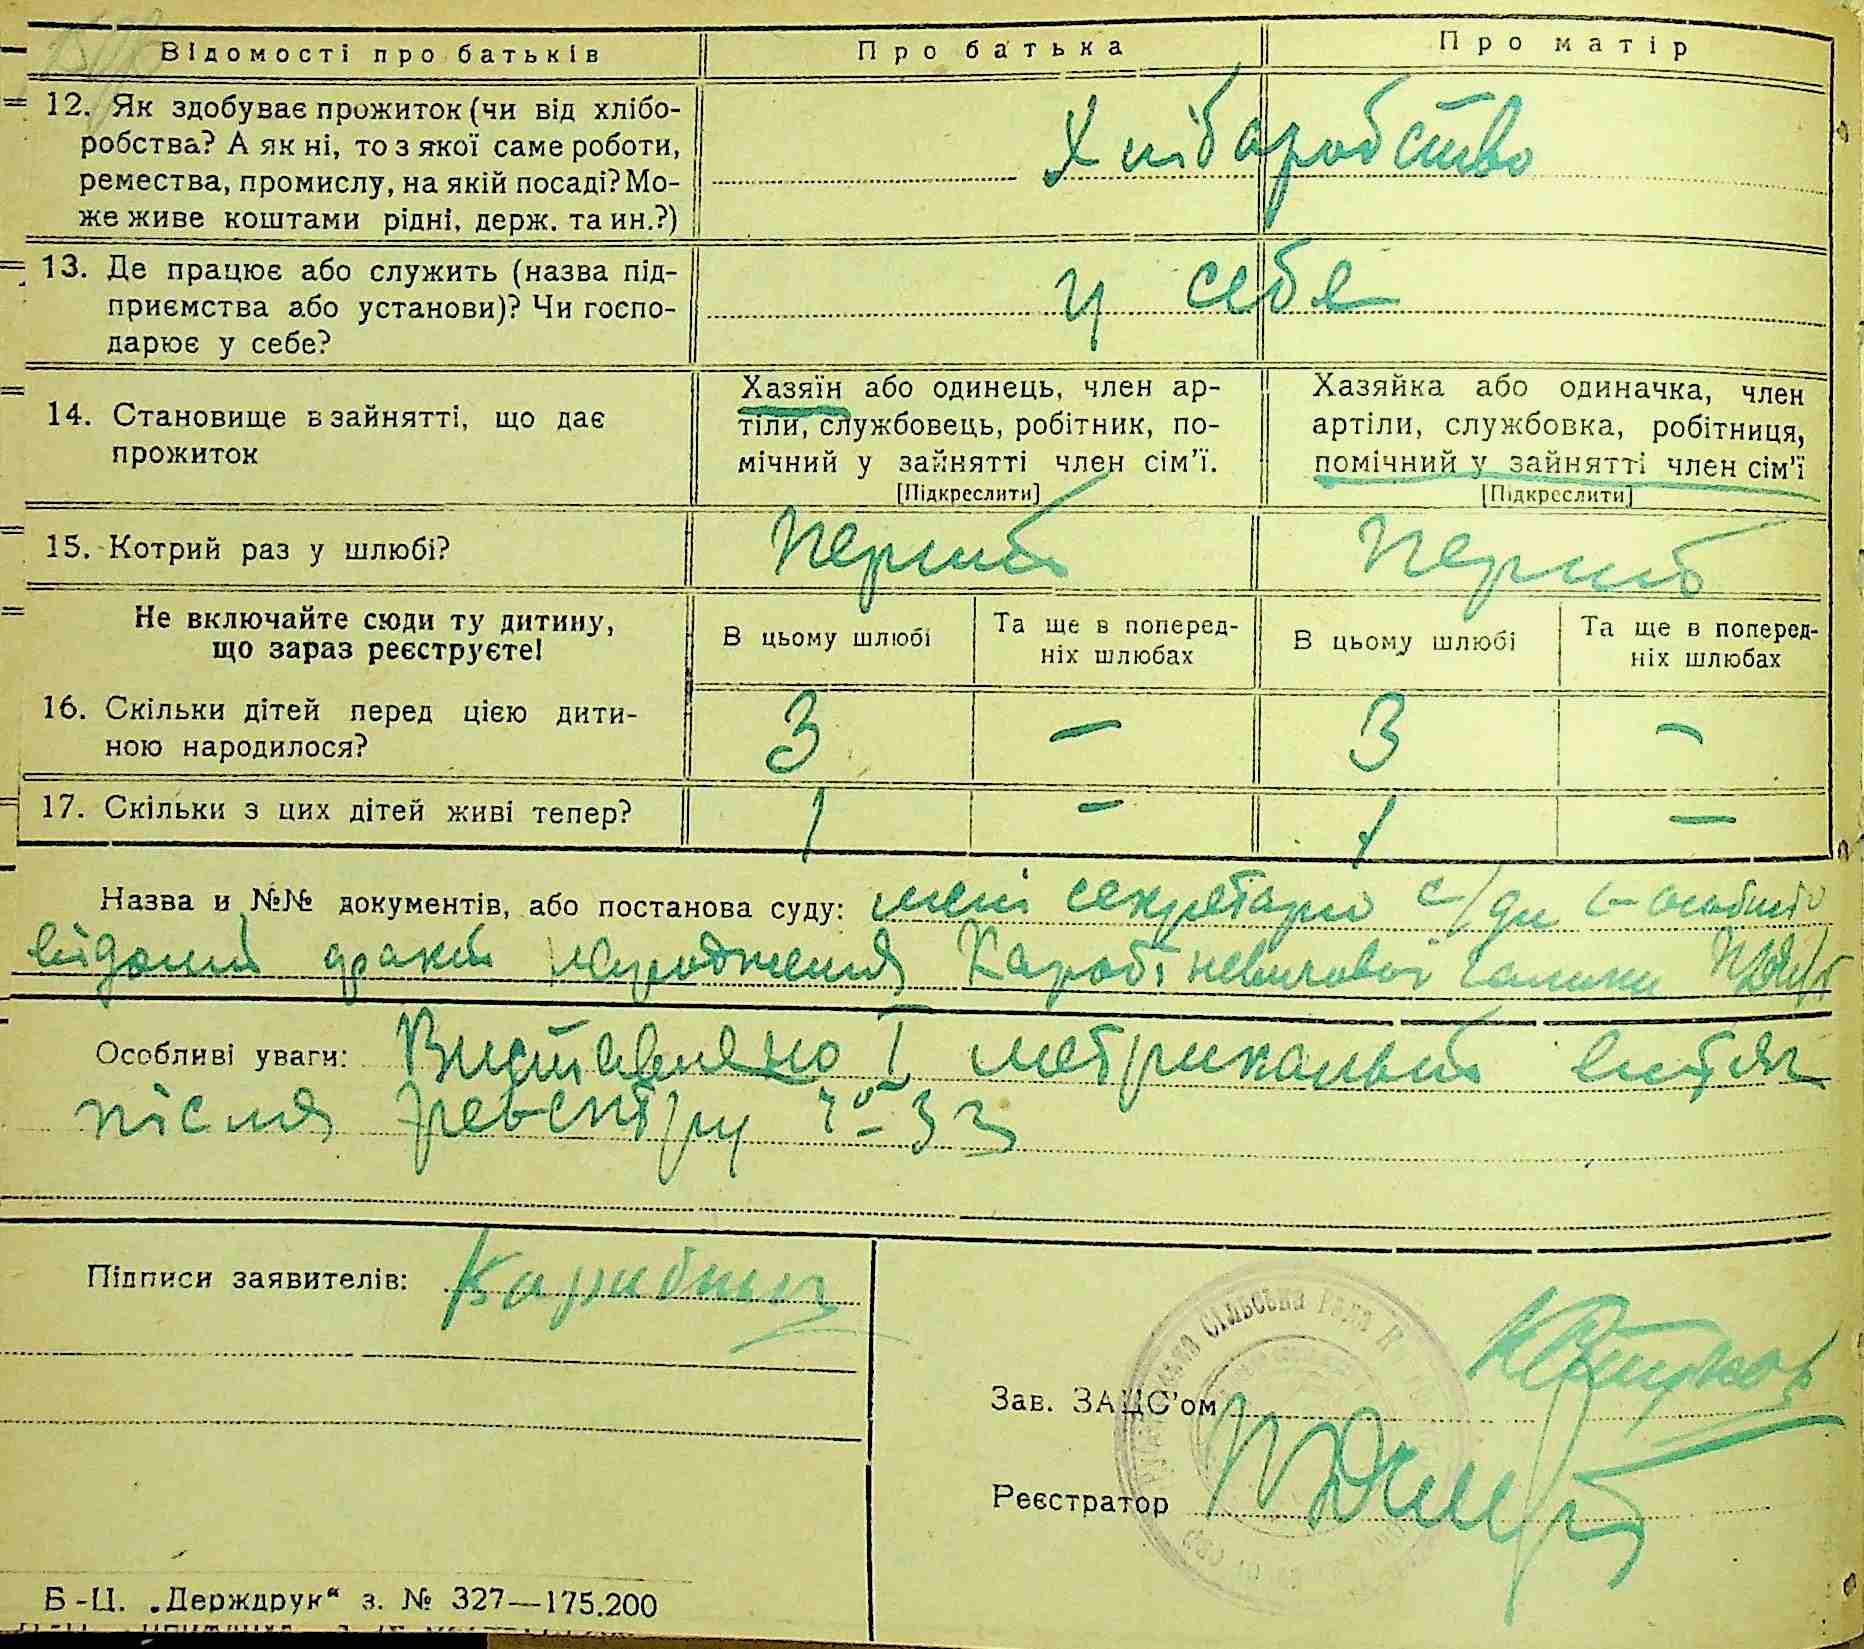 Відомості про батьків
Про батька
Про матір
12. Як здобуває прожиток (чи від хлібо-
робства? А як ні, то з якої саме роботи,
ремества, промислу, на якій посаді? Мо-
же живе коштами рідні, держ. та ин.?)
Хлібаробство
13. Де працює або служить (назва під-
приємства або установи)? Чи госпо-
дарює у себе?
у себе
14. Становище в зайнятті, що дає
прожиток
Хазяїн або одинець, член ар-
тіли, службовець, робітник, по-
мічний у зайнятті член сім'ї.
[Підкреслити]
Хазяйка або одиначка, член
артіли, службовка, робітниця,
помічний у зайнятті член сім'ї
[Підкреслити]
15. Котрий раз у шлюбі?
Перший
Перший
Не включайте сюди ту дитину,
що зараз реєструєте!
В цьому шлюбі
Та ще в поперед-
ніх шлюбах
В цьому шлюбі
Та ще в поперед-
ніх шлюбах
16. Скільки дітей перед цією дити-
ною народилося?
3 — 3 —
17. Скільки з цих дітей живі тепер?
1 — 1 —
Назва и №№ документів, або постанова суду: мені секретарю с/ди особисто
відомий факт народження Галини
Особливі уваги: Виставлено I метрикальний витяг
після 33
Підписи заявителів:
Сільська Рада
Зав. ЗАЦС'ом
Реєстратор
Б-Ц. „Держдрук“ з. № 327—175.200